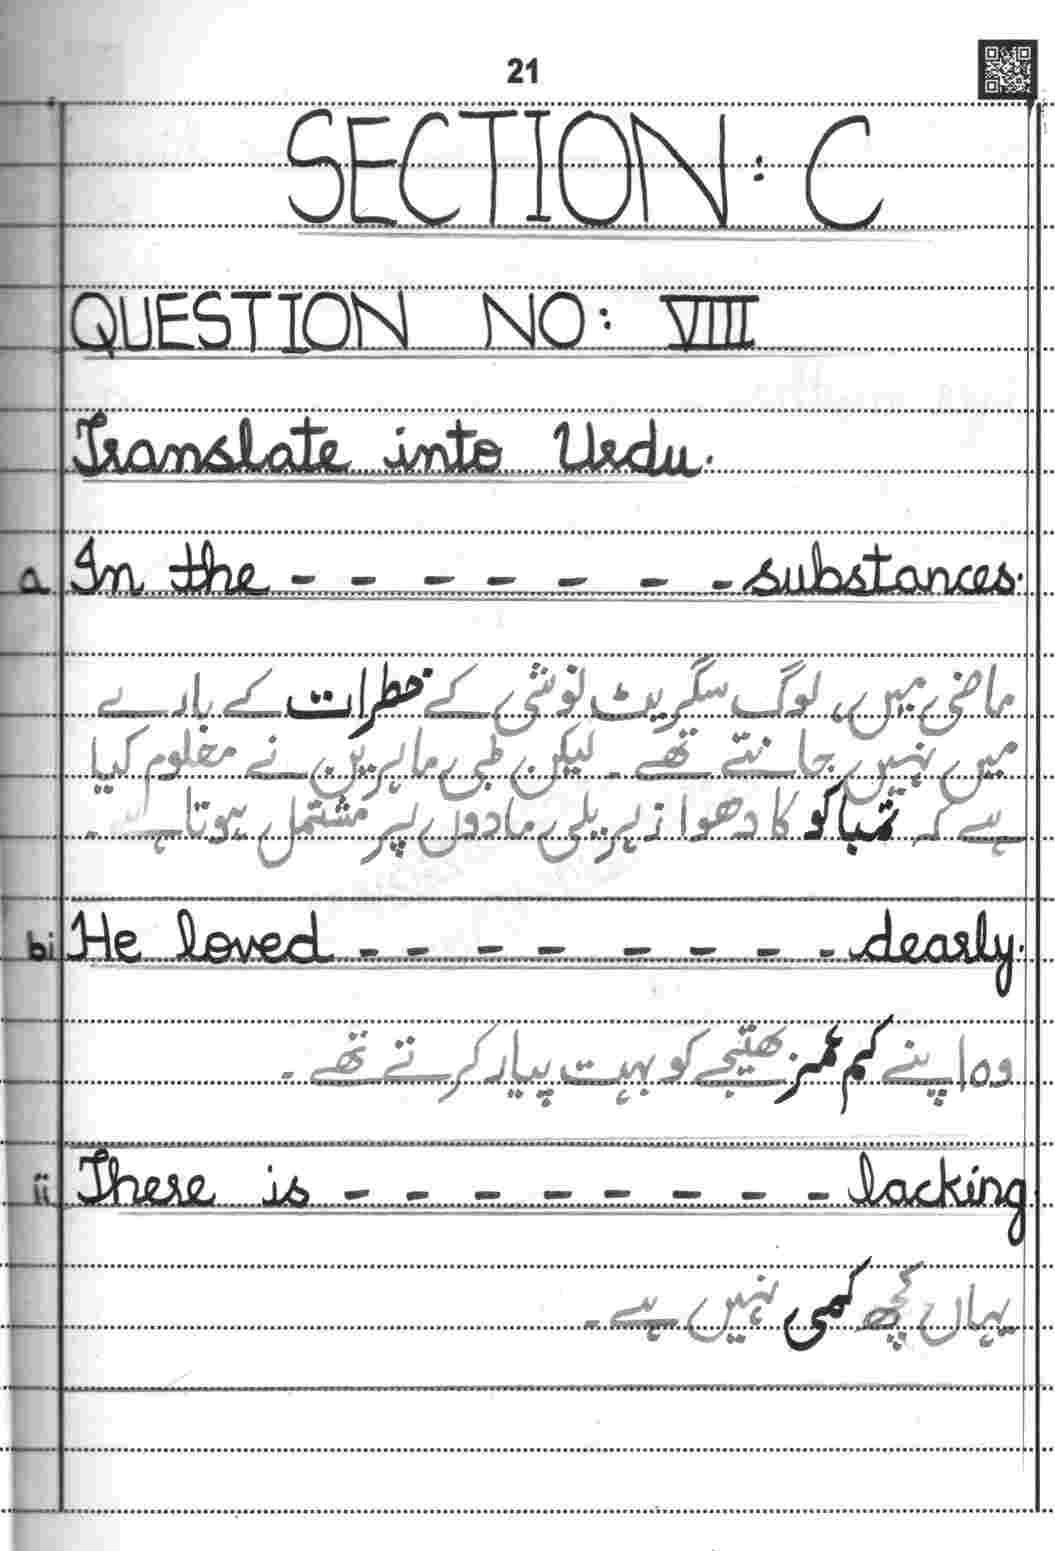 21
SECTION: C
QUESTION NO: VIII
Translate into Urdu.
a In the - - - - - - - substances.
ماضی میں، لوگ سگریٹ نوشی کے خطرات کے بارے
میں نہیں جانتے تھے۔ لیکن طبی ماہرین نے معلوم کیا
ہے کہ تمباکو کا دھوا زہریلی مادوں پر مشتمل ہوتا ہے۔
bi He loved - - - - - - - - dearly.
وہ اپنے کم عمر بھتیجے کو بہت پیار کرتے تھے۔
ii There is - - - - - - - - lacking
یہاں کچھ کمی نہیں ہے۔